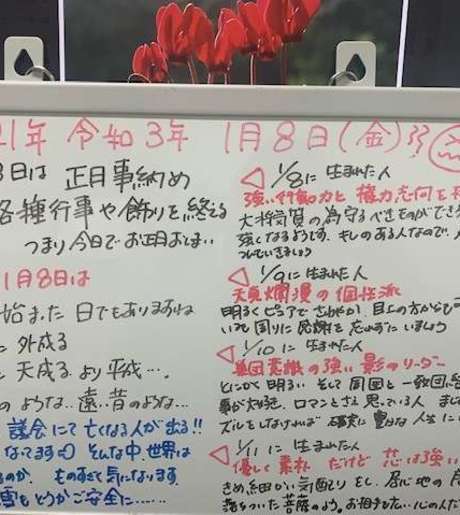 21年 令和3年 1月8日(金)
8日は 正月事納め
各種行事や飾りを終える
つまり今日でお正月おしまい
1月8日は
始まった日でもありますね
に 外成る
に 天成る より平成…
のような…遠い昔のような…
議会にて亡くなる人が出る!!
なってます そんな中、世界は
るのか ものすごく気になります
もどうかご安全に……
1/8に生まれた人
強い行動力と権力志向を
大将気質の為守るべきものができ
強くなるようです。もしのある人なので
ついていきましょう
1/9に生まれた人
天真爛漫の個性派
明るくピュアでさわやか、目上の方から
いても周りに感謝を忘れずにいましょう
1/10 に生まれた人
集団意識の強い影のリーダー
とにかく明るい そして周囲と一致団
事が大好き、ロマンとさえ思っている人
ズルをしなければ 確実に豊かな人生に
1/11 に生まれた人
優しく素朴 だけど 芯は強い
きめ細かい気配りをし、居心地の
落ちついた菩薩のよう。お相手も 心の人